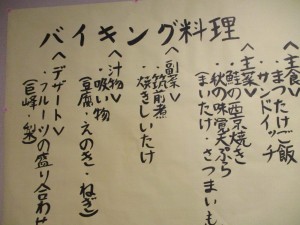 バイキング料理
<主食>
・まつたけご飯
・サンドイッチ
<主菜>
・鮭の西京焼き
・秋の味覚天ぷら
(まいたけ・さつまいも
<副菜>
・筑前煮
・焼きしいたけ
<汁物>
・吸い物
(豆腐・えのき・ねぎ)
<デザート>
・フルーツの盛り合わせ
(巨峰・梨)